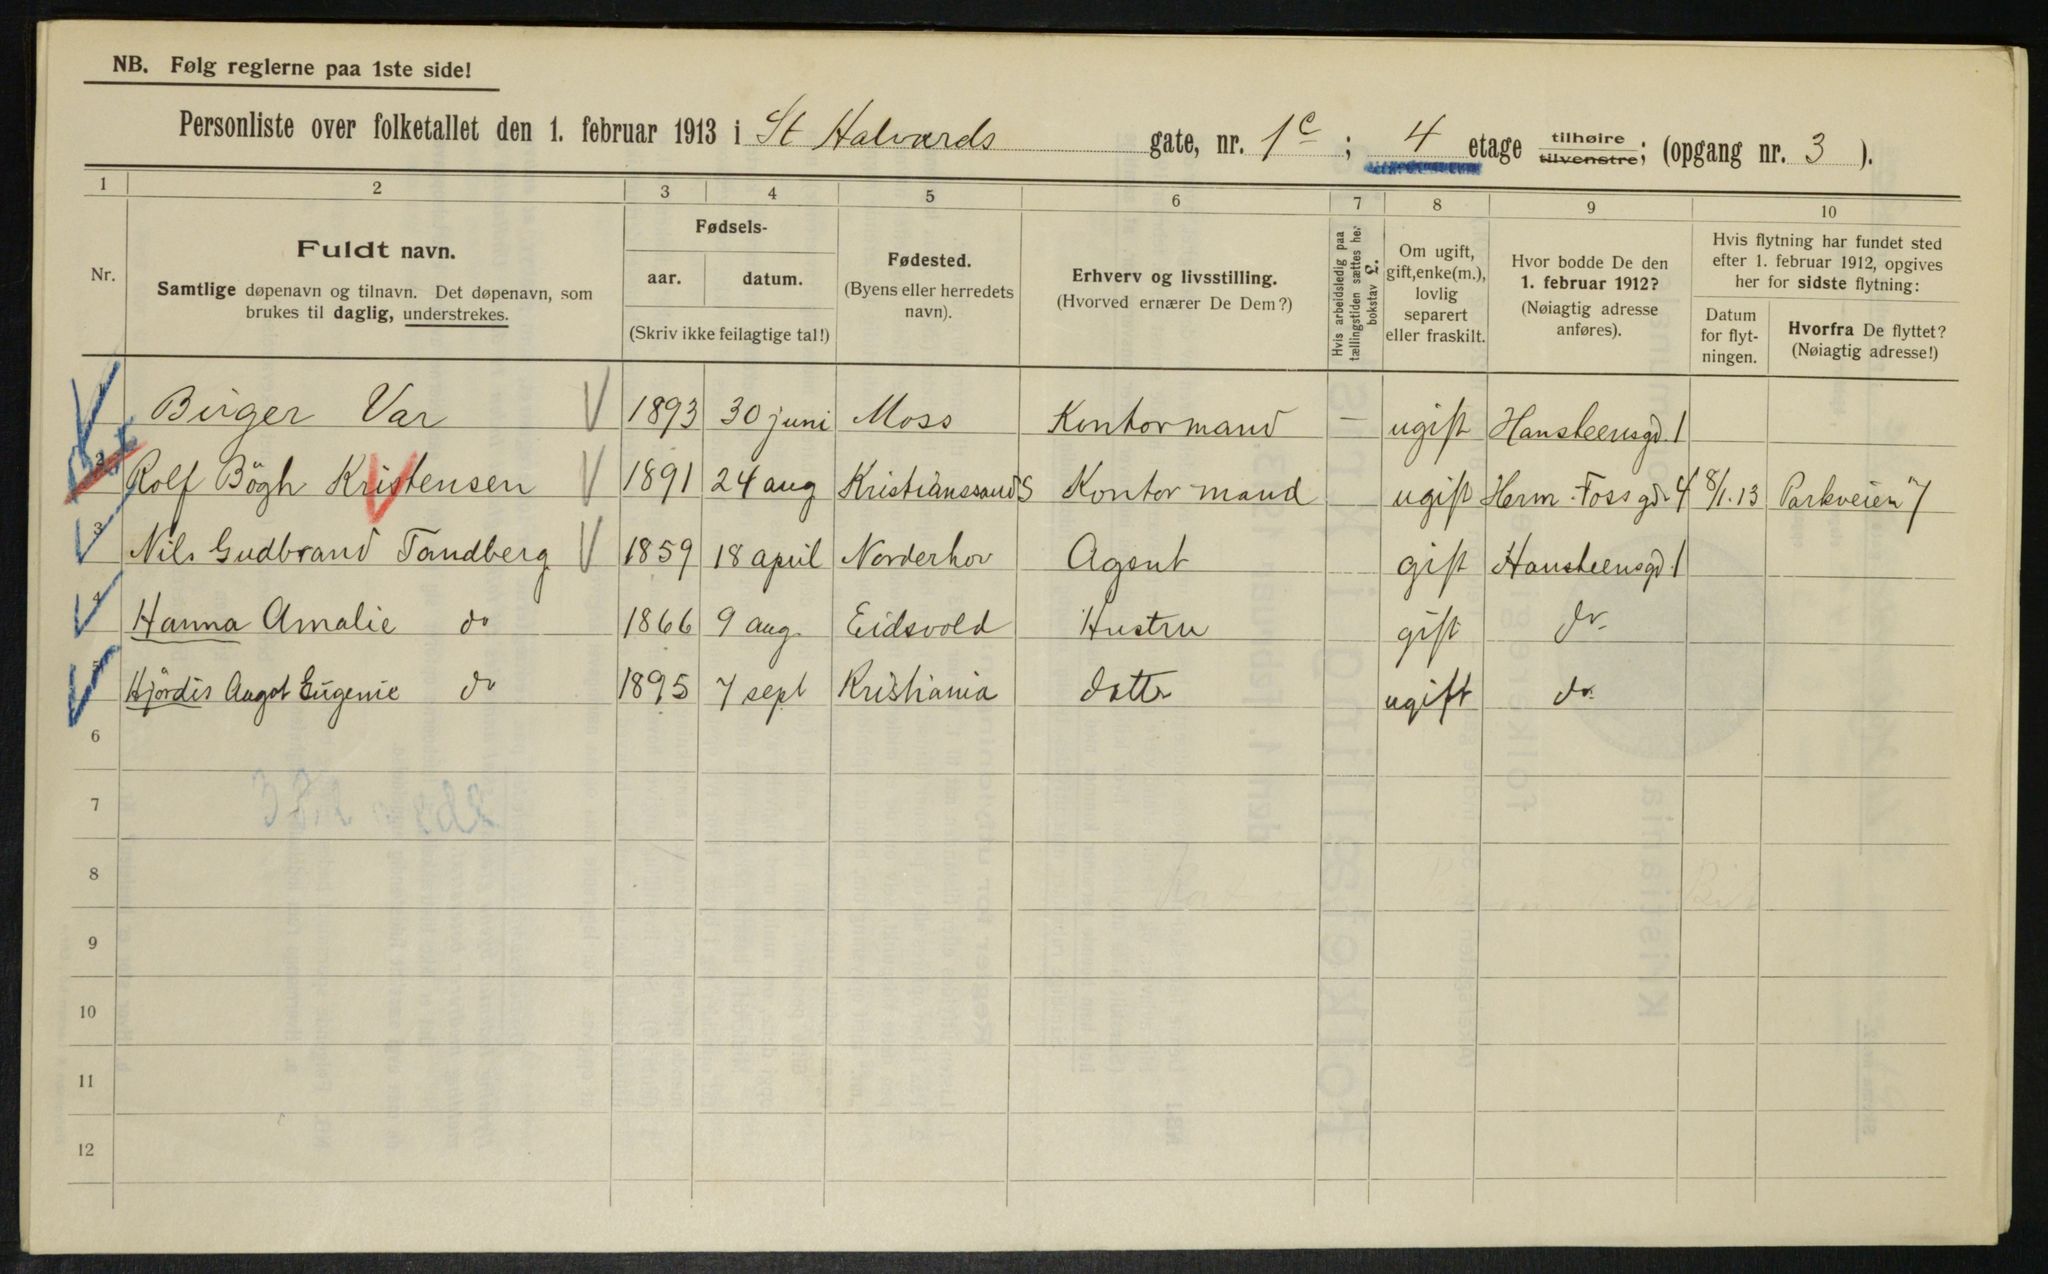 NB. Følg reglerne paa 1ste side!
Personliste over folketallet den 1. februar 1913 i St Halvards gate, nr. 1c ; 4 etage tilhøire tilvenstre; (opgang nr. 3 ).
1 2 3 4 5 6 7 8 9 10
Nr.
Fuldt navn.
Samtlige døpenavn og tilnavn. Det døpenavn, som
brukes til daglig, understrekes.
Fødsels-
aar. datum.
(Skriv ikke feilagtige tal!)
Fødested.
(Byens eller herredets
navn).
Erhverv og livsstilling.
(Hvorved ernærer De Dem?)
Hvis arbeidsledig paa
tællingstiden sættes her
bokstav L.
Om ugift,
gift, enke(m.),
lovlig
separert
eller fraskilt.
Hvor bodde De den
1. februar 1912?
(Nøiagtig adresse
anføres).
Hvis flytning har fundet sted
efter 1. februar 1912, opgives
her for sidste flytning:
Datum
for flyt-
ningen.
Hvorfra De flyttet?
(Nøiagtig adresse!)
1 Birger Var 1893 30 juni Moss Kontormand — ugift Hansteensgd. 1
2 Rolf Bögh Kristensen 1891 24 aug Kristianssand S Kontormand ugift Herm. Foss gd. 4 8/1.13 Parkveien 7
3 Nils Gudbrand Tandberg 1859 18 april Norderhov Agent gift Hansteensgd. 1
4 Hanna Amalie do 1866 9 aug. Eidsvold Hustru gift do.
5 Hjördis Augot Eugenie do 1895 7 sept Kristiania datter ugift do.
6
7
8
9
10
11
12